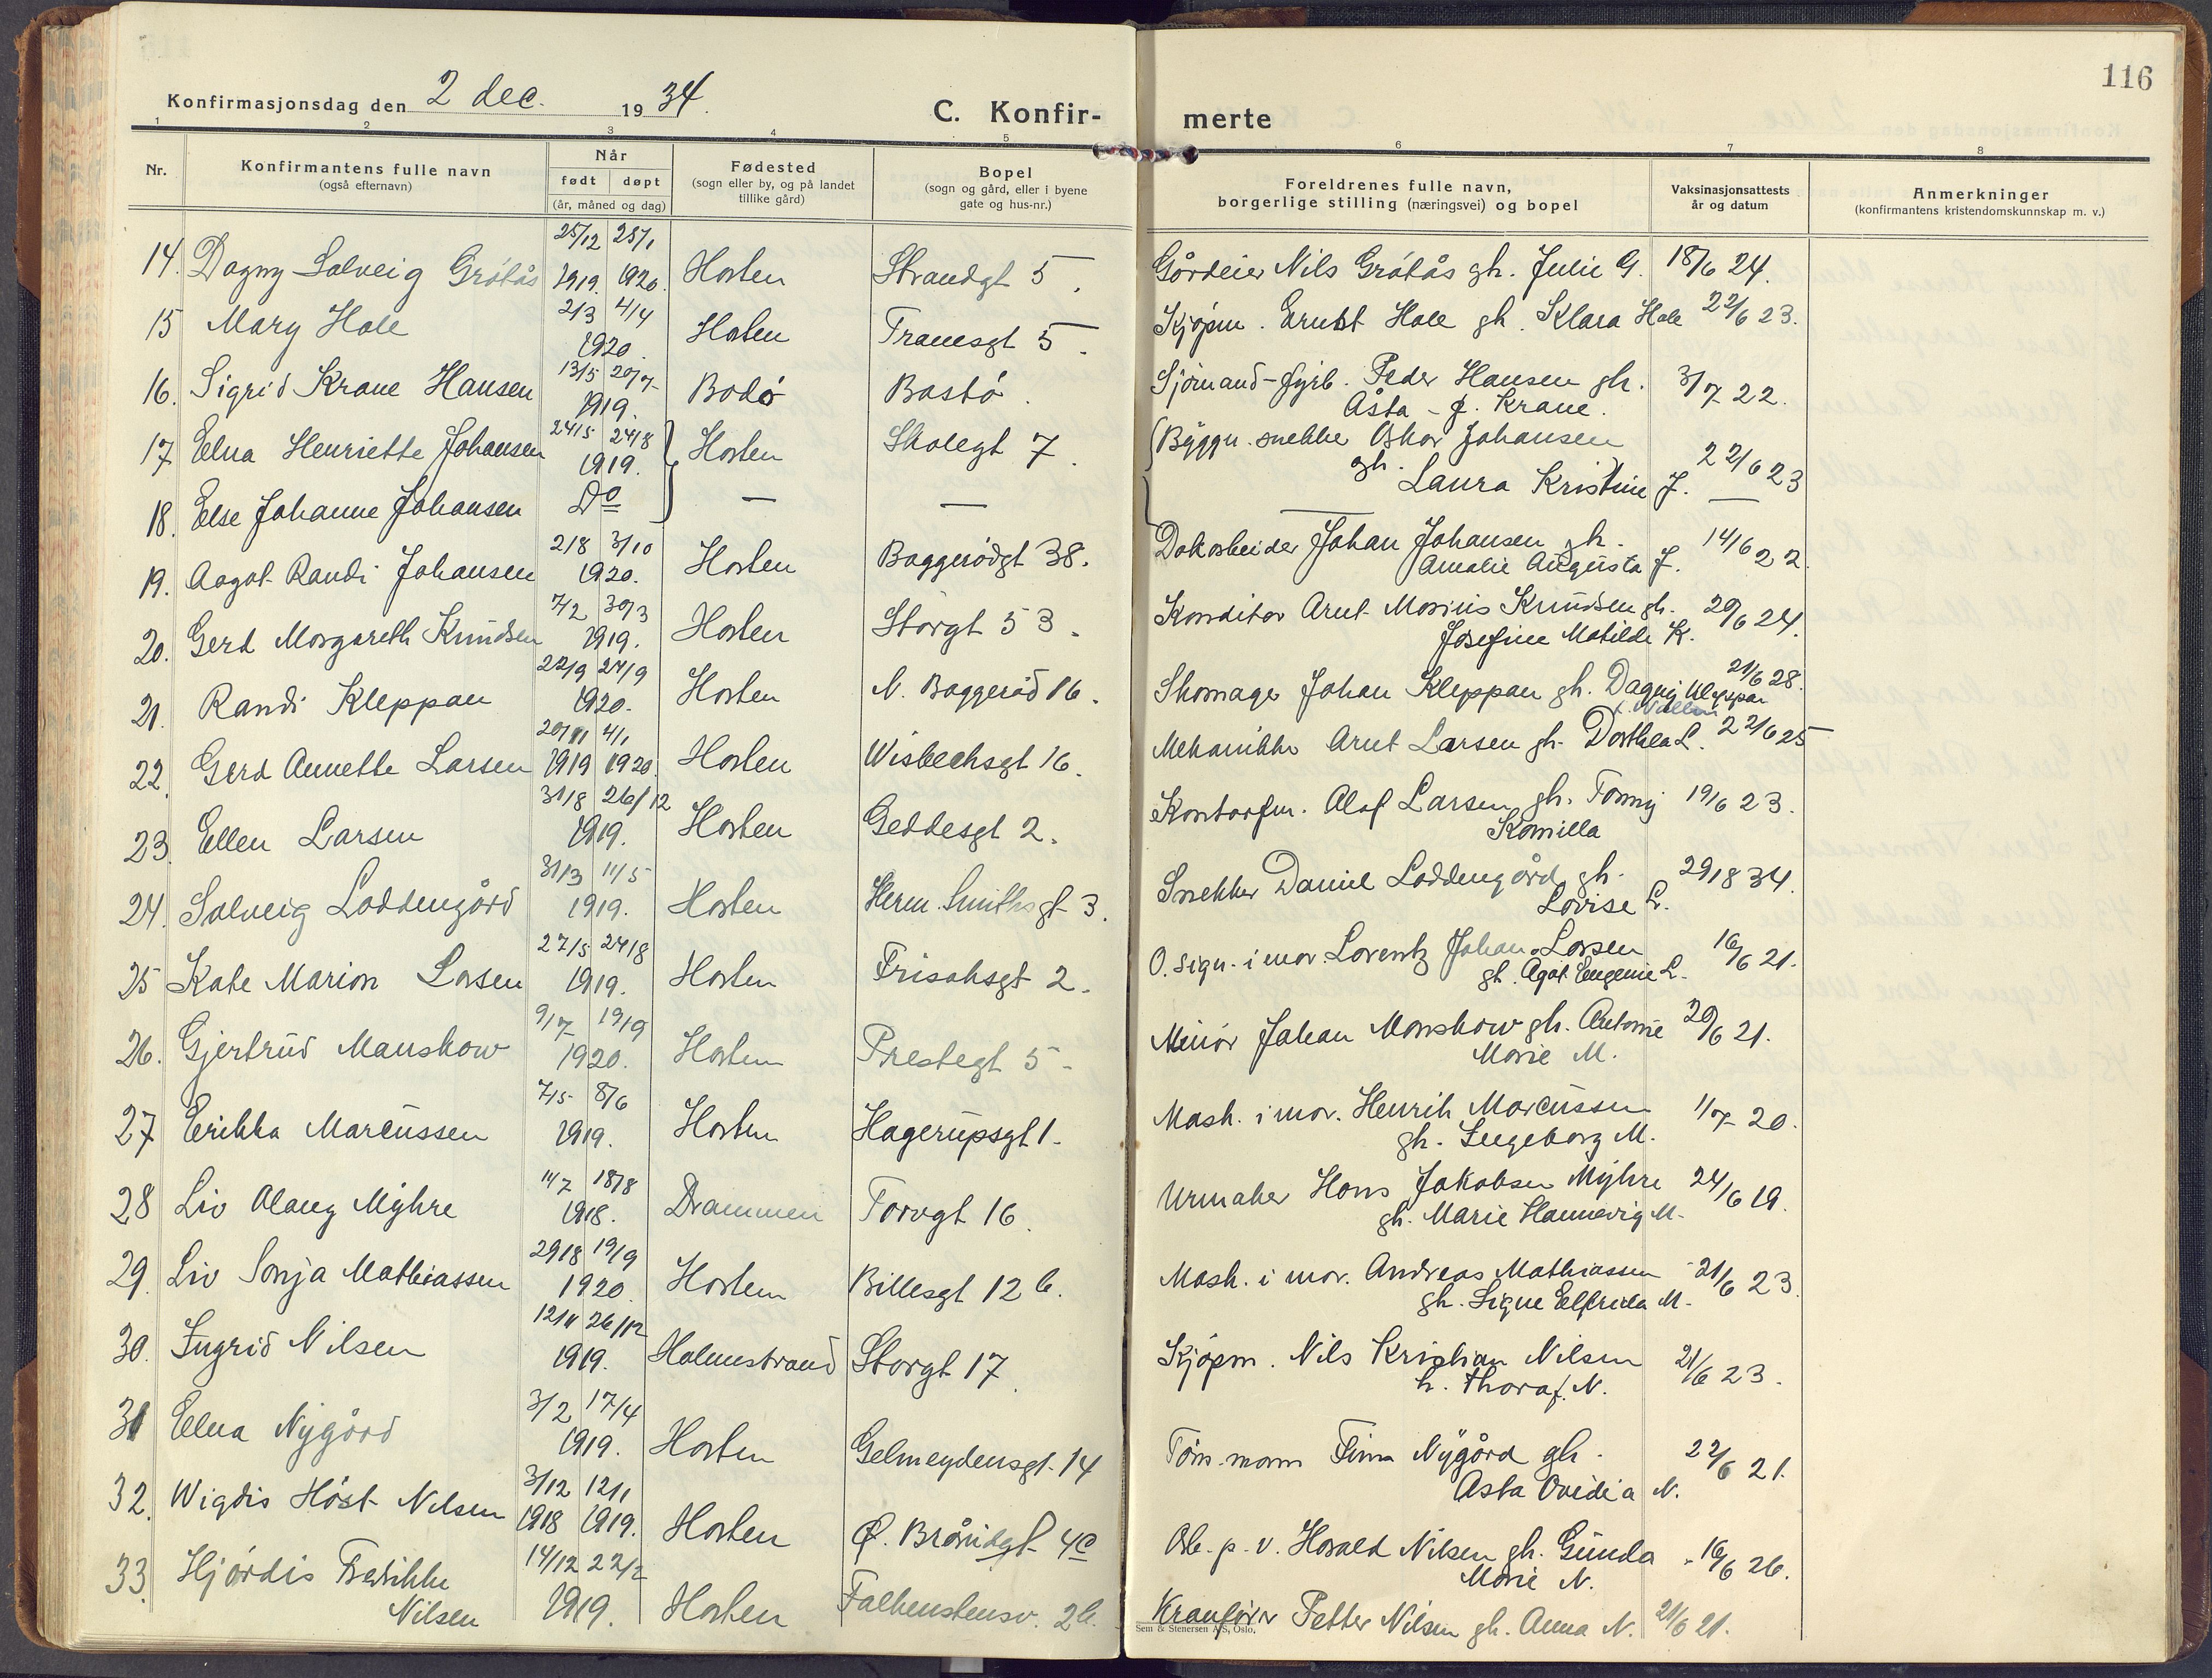 116
Konfirmasjonsdag den 2 dec. 1934.
C. Konfir-
merte
1 2 3 4 5 6 7 8
Nr.
Konfirmantens fulle navn
(også efternavn)
Når
født døpt
(år, måned og dag)
Fødested
(sogn eller by, og på landet
tillike gård)
Bopel
(sogn og gård, eller i byene
gate og hus-nr.)
Foreldrenes fulle navn,
borgerlige stilling (næringsvei) og bopel
Vaksinasjonsattests
år og datum
Anmerkninger
(konfirmantens kristendomskunnskap m. v.)
14. Dagny Solveig Gråtås 25/12 1919. 25/1 1920. Horten Strandgt 5. Gårdeier Nils Gråtås gh. Julie G. 18/6 24.
15 Mary Hole 2/3 4/4 1920. Horten Tranesgt 5. Kjøpm. Ernst Hole gh. Klara Hole 22/6 23.
16. Sigrid Krane Hansen 13/5 20/7 1919. Bodø Bastø. Sjømand-fyrb. Peder Hansen gh.
Åsta - f. Krane. 3/7 22.
17 Elna Henriette Johansen 24/5 24/8 1919. Horten Skolegt 7. Byggn. snekker Oskar Johansen
gh. Laura Kristine J. 22/6 23
18. Else Johanne Johansen Do — — — —
19. Aagot Randi Johansen 2/8 3/10 1920. Horten Baggerødgt 38. Dokarbeider Johan Johansen gh.
Amalie Augusta J. 14/6 22.
20. Gerd Margareth Knudsen 7/2 30/3 1919. Horten Storgt 53. Konditor Arnt Marius Knudsen gh.
Josefine Matilde K. 20/6 24.
21. Randi Kleppan 22/9 24/9 1920. Horten N. Baggerød 16. Skomager Johan Kleppan gh. Dagny Kleppan
f. Wallin 21/6 28.
22. Gerd Annette Larsen 20/11 1919 4/1 1920. Horten Wisbechsgt 16. Mekanikker Arnt Larsen gh. Dorthea L. 22/6 25
23. Ellen Larsen 31/8 26/12 1919. Horten Geddesgt 2. Kontorfm. Alof Larsen gh. Fanny
Kamilla 19/6 23.
24. Solveig Loddengård 31/3 11/5 1919. Horten Herm. Smithsgt 3. Snekker Daniel Loddengård gh.
Lovise L. 29/8 34.
25 Kate Marion Larsen 27/5 24/8 1919. Horten Frisaksgt 2. O. sign. i mar. Lorentz Johan Larsen
gh. Agot Eugenie L. 16/6 21.
26. Gjertrud Manskow 9/7 19/9 1920. Horten Prestegt 5. Minør Johan Manskow gh. Antonie
Marie M. 20/6 21.
27 Erikka Marcussen 7/5 8/6 1919. Horten Hagerupsgt 1. Mask. i mar. Henrik Marcussen
gh. Ingeborg M. 11/7 20.
28 Liv Olaug Myhre 14/7 18/8 1918. Drammen Torvgt 16. Urmaker Hans Jakobsen Myhre
gh. Marie Hannevig M. 24/6 19.
29. Liv Sonja Mathiassen 29/8 19/9 1920 Horten Billesgt 12 b. Mask. i mar. Andreas Mathiassen
gh. Signe Elfrida M. 21/6 23.
30. Ingrid Nilsen 12/11 26/12 1919. Holmestrand Storgt 17. Kjøpm. Nils Kristian Nilsen
h. Thora f. N. 21/6 23.
31 Elna Nygård 3/2 17/4 1919. Horten Gelmeydensgt. 14 Tøm.mann Finn Nygård gh.
Asta Ovidia N. 22/6 21.
32. Wigdis Höst Nilsen 3/12 1918 12/1 1919. Horten Ø. Bråndgt 4c Arb. p. v. Harald Nilsen gh. Gunda
Marie N. 16/6 26.
33. Hjördis Fredrikke
Nilsen 14/12 22/2 1919. Horten Falkenstensv. 2b. Kranfører Petter Nilsen gh. Anna N. 21/6 21.
Sem & Stenersen A/S, Oslo.